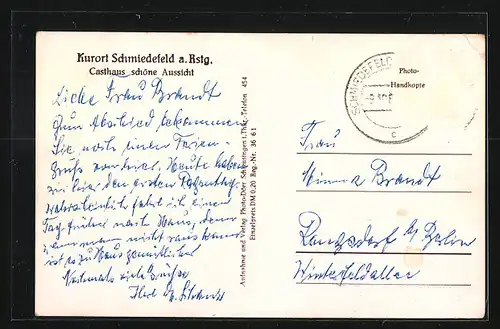 Kurort Schmiedefeld a. Rstg.
Gasthaus schöne Aussicht
Liebe Frau Brandt
Zum Abschied bekommen
Sie noch einen Ferien-
gruß von mir. Heute haben
wir hier den ersten
fahre ich einen
Tag früher nach Haus, denn
wenn man nicht raus kann
ist es zu Haus gemütlicher
Nochmals viele Grüße
Ihre
Aufnahme und Verlag Photo-Döer Schleusingen i. Thür. Telefon 454
Einzelpreis DM 0,20 Reg.-Nr. 36 6 1
SCHMIEDEFELD
c
Photo-
Handkopie
Frau
Minna Brandt
Rangsdorf b/ Berlin
Winterfeldallee